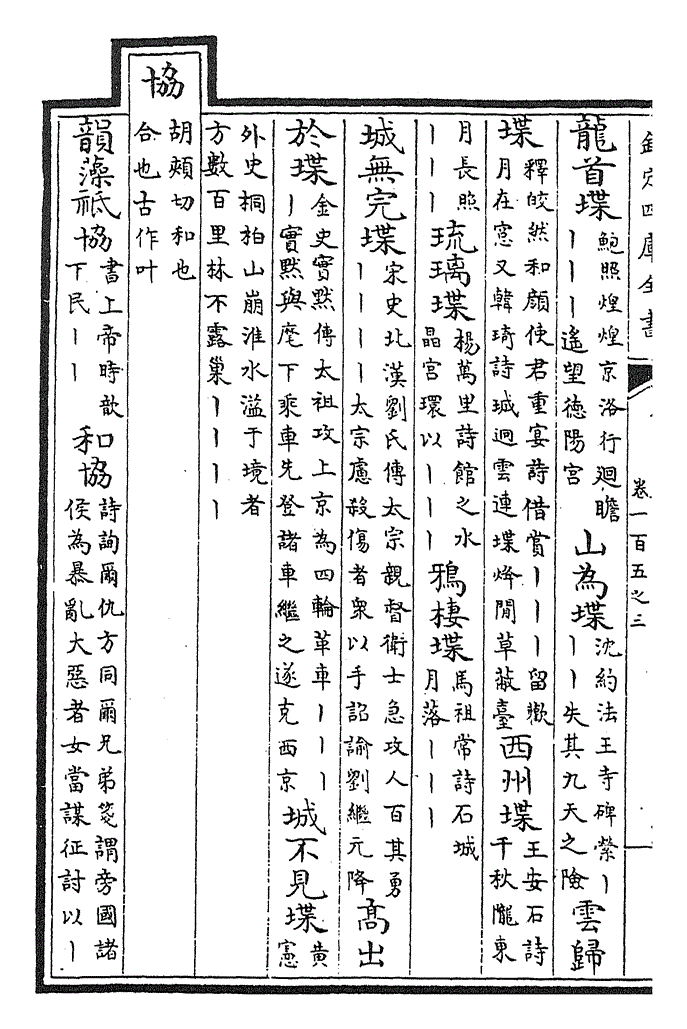 欽定四庫全書 卷一百五之三
龍首堞 鮑照煌煌京洛行廻瞻｜｜｜遙望德陽宫 山為堞 沈約法王寺碑縈｜｜｜失其九天之險 雲歸
堞 釋皎然和顔使君重宴詩借賞｜｜｜留歡月在窓又韓琦詩城迴雲連堞烽閒草蔽臺 西州堞 王安石詩千秋隴東
月長照｜｜｜ 琉璃堞 楊萬里詩館之水晶宫環以｜｜｜ 鴉棲堞 馬祖常詩石城月落｜｜｜
城無完堞 宋史北漢劉氏傳太宗親督衛士急攻人百其勇｜｜｜｜太宗慮殺傷者衆以手詔諭劉繼元降 高出
於堞 金史實黙傳太祖攻上京為四輪革車｜｜｜｜實黙與麾下乘車先登諸車繼之遂克西京 城不見堞 黄憲
外史桐柏山崩淮水溢于境者方數百里林不露巢｜｜｜｜
協 胡頰切和也合也古作叶
韻藻 祗協 書上帝時歆下民｜｜ 和協 詩詢爾仇方同爾兄弟箋謂旁國諸侯為暴亂大惡者女當謀征討以｜